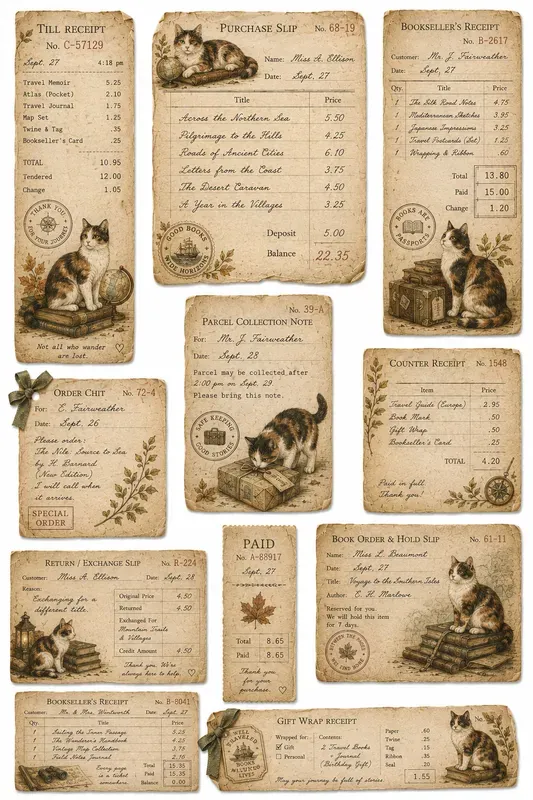 TILL RECEIPT
No. C-57129
Sept. 27 4:18 pm
Travel Memoir 5.25
Atlas (Pocket) 2.10
Travel Journal 1.75
Map Set 1.25
Twine & Tag .35
Bookseller's Card .25
TOTAL 10.95
Tendered 12.00
Change 1.05
THANK YOU
FOR YOUR JOURNEY
Not all who wander
are lost.
PURCHASE SLIP No. 68-19
Name: Miss A. Ellison
Date: Sept, 27
Title Price
Across the Northern Sea 5.50
Pilgrimage to the Hills 4.25
Roads of Ancient Cities 6.10
Letters from the Coast 3.75
The Desert Caravan 4.50
A Year in the Villages 3.25
Deposit 5.00
Balance 22.35
GOOD BOOKS
WIDE HORIZONS
BOOKSELLER'S RECEIPT
No. B-2617
Customer: Mr. J. Fairweather
Date: Sept, 27
Qty. Title Price
1 The Silk Road Notes 4.75
1 Mediterranean Sketches 3.95
1 Japanese Impressions 3.25
1 Travel Postcards (Set) 1.25
1 Wrapping & Ribbon .60
Total 13.80
Paid 15.00
Change 1.20
BOOKS ARE
PASSPORTS
No. 39-A
PARCEL COLLECTION NOTE
For: Mr. J. Fairweather
Date: Sept. 28
Parcel may be collected after
2:00 pm on Sept. 29.
Please bring this note.
SAFE KEEPING
GOOD STORIES
ORDER CHIT No. 72-4
For: E. Fairweather
Date: Sept. 26
Please order:
The Nile, Source to Sea
by H. Barnard
(New Edition)
I will call when
it arrives.
SPECIAL
ORDER
COUNTER RECEIPT No. 1548
Item Price
Travel Guide (Europe) 2.95
Book Mark .50
Gift Wrap .50
Bookseller's Card .25
TOTAL 4.20
Paid in full
Thank you!
RETURN / EXCHANGE SLIP No. R-224
Customer: Miss A. Ellison Date: Sept. 28
Reason:
Exchanging for a
different title.
Original Price 4.50
Returned 4.50
Exchanged For
Mountain Trails
& Villages
Credit Amount 4.50
Thank you. We're
always here to help.
PAID
No. A-88917
Sept, 27
Total 8.65
Paid 8.65
Thank you
for your
purchase.
BOOK ORDER & HOLD SLIP No. 61-11
Name: Miss L. Beaumont
Date: Sept, 27
Title: Voyage to the Southern Isles
Author: E. H. Marlowe
Reserved for you
We will hold this item
for 7 days.
BETWEEN THE PAGES
BOOKSELLER'S RECEIPT No. B-8041
Customer: Mr. & Mrs. Wentworth Date: Sept. 27
Qty. Title Price
1 Sailing the Inner Passage 5.25
1 The Wanderer's Handbook 4.25
1 Vintage Map Collection 3.75
1 Field Notes Journal
Every page
is a ticket
somewhere.
Total 15.35
Paid 15.35
Balance 0.00
GIFT WRAP RECEIPT No.
WELL
TRAVELED
BOOKS
LIVES
Wrapped for: Contents:
Gift 2 Travel Books
Personal + Journal
(Birthday Gift)
Paper .60
Twine .25
Tag .15
Ribbon .35
Seal .20
1.55
May your journey be full of stories.